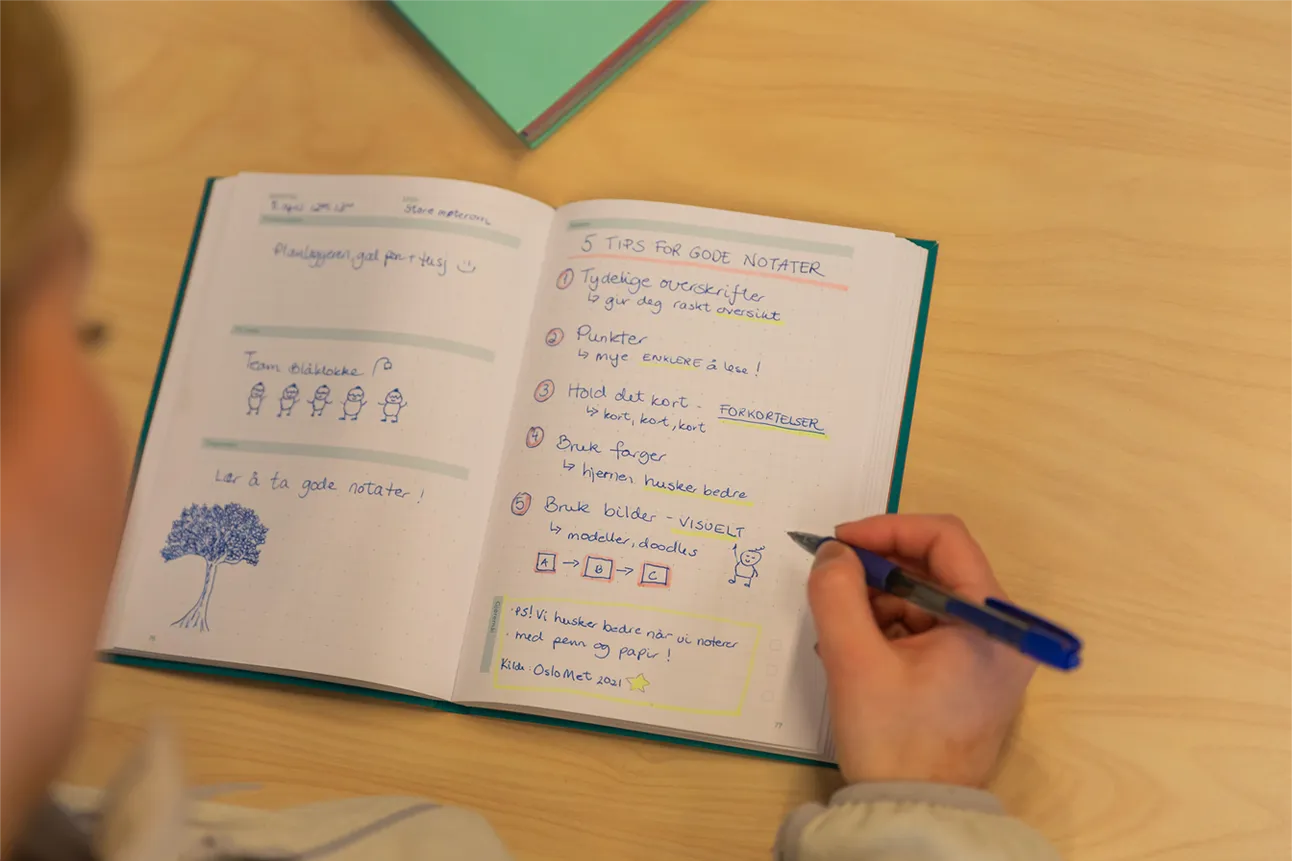 Store møterom
Planleggeren, god penn + tusj
Team Blåklokke
Lær å ta gode notater!
5 TIPS FOR GODE NOTATER
1 Tydelige overskrifter
↳ gir deg raskt oversikt
2 Punkter
↳ mye ENKLERE å lese!
3 Hold det kort - FORKORTELSER
↳ kort, kort, kort
4 Bruk farger
↳ hjernen husker bedre
5 Bruk bilder - VISUELT
↳ modeller, doodles
A → B → C
· PS! Vi husker bedre når vi noterer
· med penn og papir!
Kilde: OsloMet 2021
77